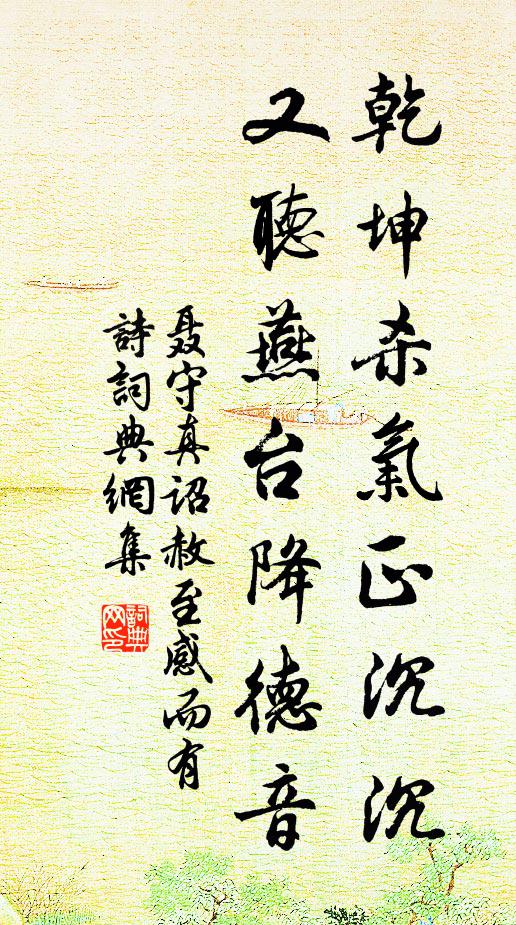 乾坤杀氣正沉沉
又聽燕台降德音
聂守真詔赦至感而有
詩詞典網集
詞典网印